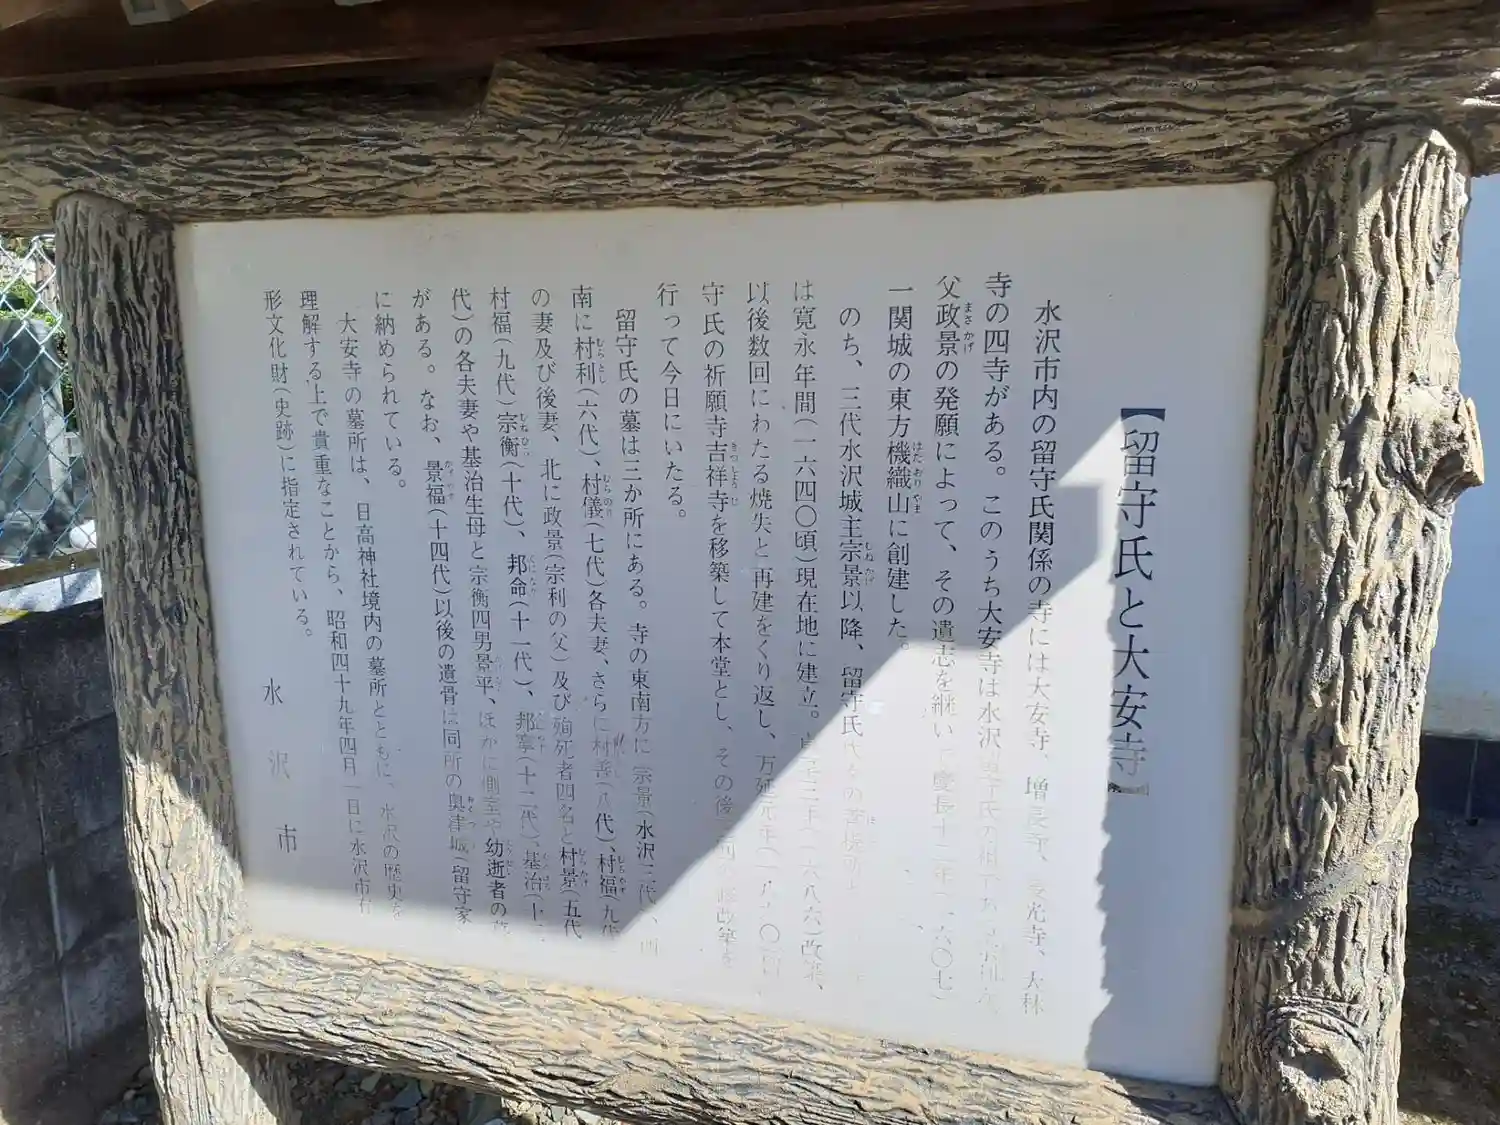 【留守氏と大安寺】
水沢市内の留守氏関係の寺には大安寺、増長寺、光寺、大林
寺の四寺がある。このうち大安寺は水沢
父政景の発願によって、その遺志を継い慶長十二年(一六〇七)
一関城の東方機織山に創建した。
のち、三代水沢城主宗景以降、留守氏代々の菩提所
は寛永年間(一六四〇頃)現在地に建立。貞享三年(一六八六)改築、
以後数回にわたる焼失と再建をくり返し、万延元年(一八六〇)
守氏の祈願寺吉祥寺を移築して本堂とし、その後改築を
行って今日にいたる。
留守氏の墓は三か所にある。寺の東南方に宗景(水沢三代)、西
南に村利(六代)、村儀(七代)各夫妻、さらに村善(八代)、村福(九代
の妻及び後妻、北に政景(宗利の父)及び殉死者四名と村景(五代
村福(九代)宗衡(十代)、邦命(十一代)、邦寧(十二代)、基治(十
代)の各夫妻や基治生母と宗衡四男景平、ほかに側室や幼逝者の墓
がある。なお、景福(十四代)以後の遺骨は同所の奥津城(留守家
に納められている。
大安寺の墓所は、日高神社境内の墓所とともに、水沢の歴史を
理解する上で貴重なことから、昭和四十九年四月一日に水沢市有
形文化財(史跡)に指定されている。
水沢市
まさかげ
はたおりやま
むねかげ
きつしょうじ
むらとし
むらのり
むらやす
むらかげ
むねひら
くになり